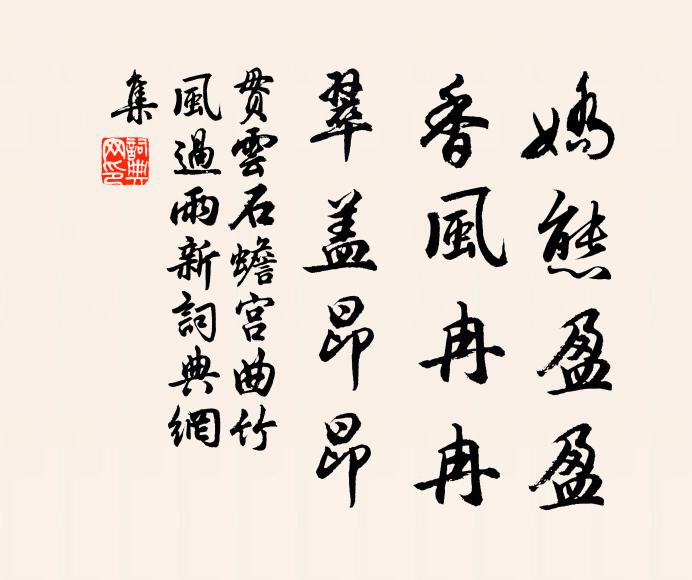 嬌態盈盈
香風冉冉
翠盖昂昂
貫雲石蟾宮曲竹
風過雨新詞典網
集
詞典
网印